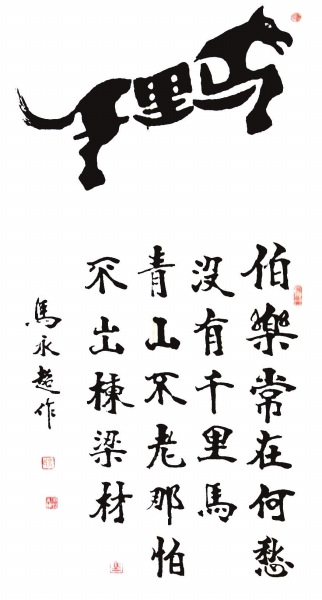 千里马
伯樂常在何愁
没有千里馬
青山不老那怕
不出棟梁材
馬永超作